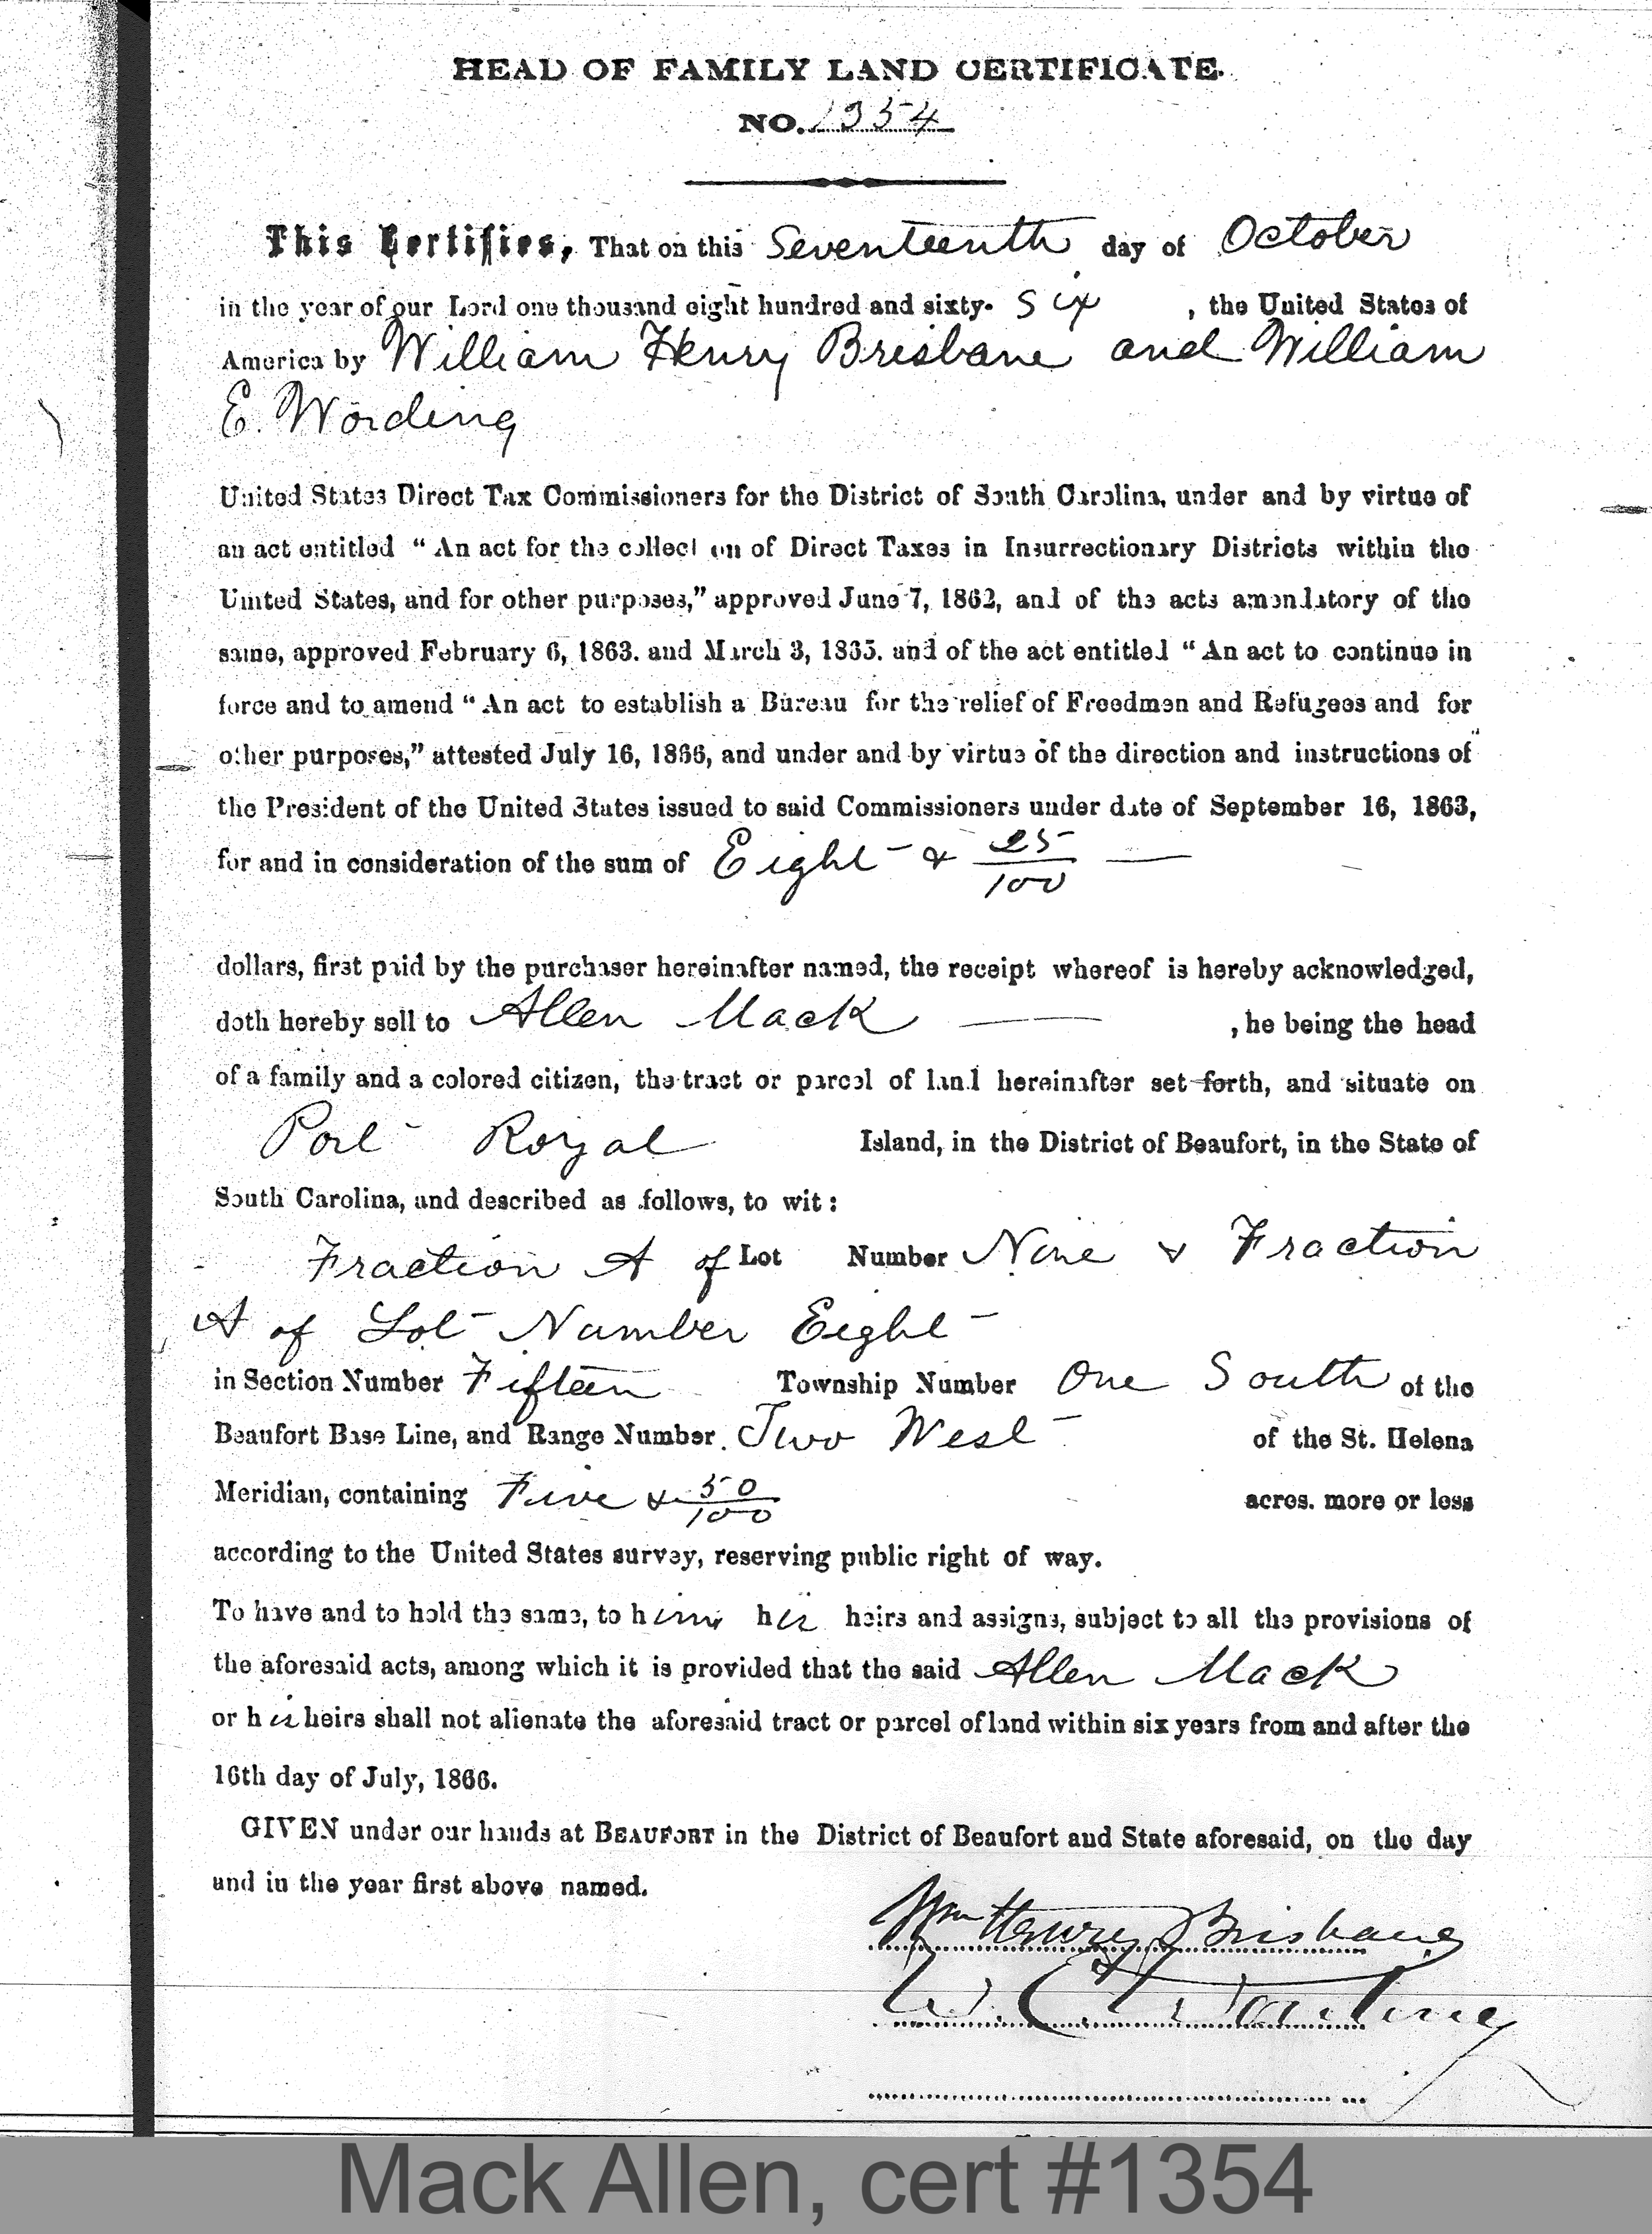 HEAD OF FAMILY LAND CERTIFICATE.
NO. 1354
This Certifies, That on this Seventeenth day of October
in the year of our Lord one thousand eight hundred and sixty- six , the United States of
America by William Henry Brisbane and William
E. Wording
United States Direct Tax Commissioners for the District of South Carolina, under and by virtue of
an act entitled " An act for the collection of Direct Taxes in Insurrectionary Districts within the
United States, and for other purposes," approved June 7, 1862, and of the acts amendatory of the
same, approved February 6, 1863. and March 3, 1865. and of the act entitled " An act to continue in
force and to amend " An act to establish a Bureau for the relief of Freedmen and Refugees and for
other purposes," attested July 16, 1866, and under and by virtue of the direction and instructions of
the President of the United States issued to said Commissioners under date of September 16, 1863,
for and in consideration of the sum of Eight & 25/100
dollars, first paid by the purchaser hereinafter named, the receipt whereof is hereby acknowledged,
doth hereby sell to Allen Mack , he being the head
of a family and a colored citizen, the tract or parcel of land hereinafter set forth, and situate on
Port Royal Island, in the District of Beaufort, in the State of
South Carolina, and described as follows, to wit :
Fraction A of Lot Number Nine & Fraction
A of Lot Number Eight
in Section Number Fifteen Township Number One South of the
Beaufort Base Line, and Range Number Two West of the St. Helena
Meridian, containing Five & 50/100 acres. more or less
according to the United States survey, reserving public right of way.
To have and to hold the same, to him his heirs and assigns, subject to all the provisions of
the aforesaid acts, among which it is provided that the said Allen Mack
or his heirs shall not alienate the aforesaid tract or parcel of land within six years from and after the
16th day of July, 1866.
GIVEN under our hands at BEAUFORT in the District of Beaufort and State aforesaid, on the day
and in the year first above named.
Wm Henry Brisbane
W. E. Wording
Mack Allen, cert #1354